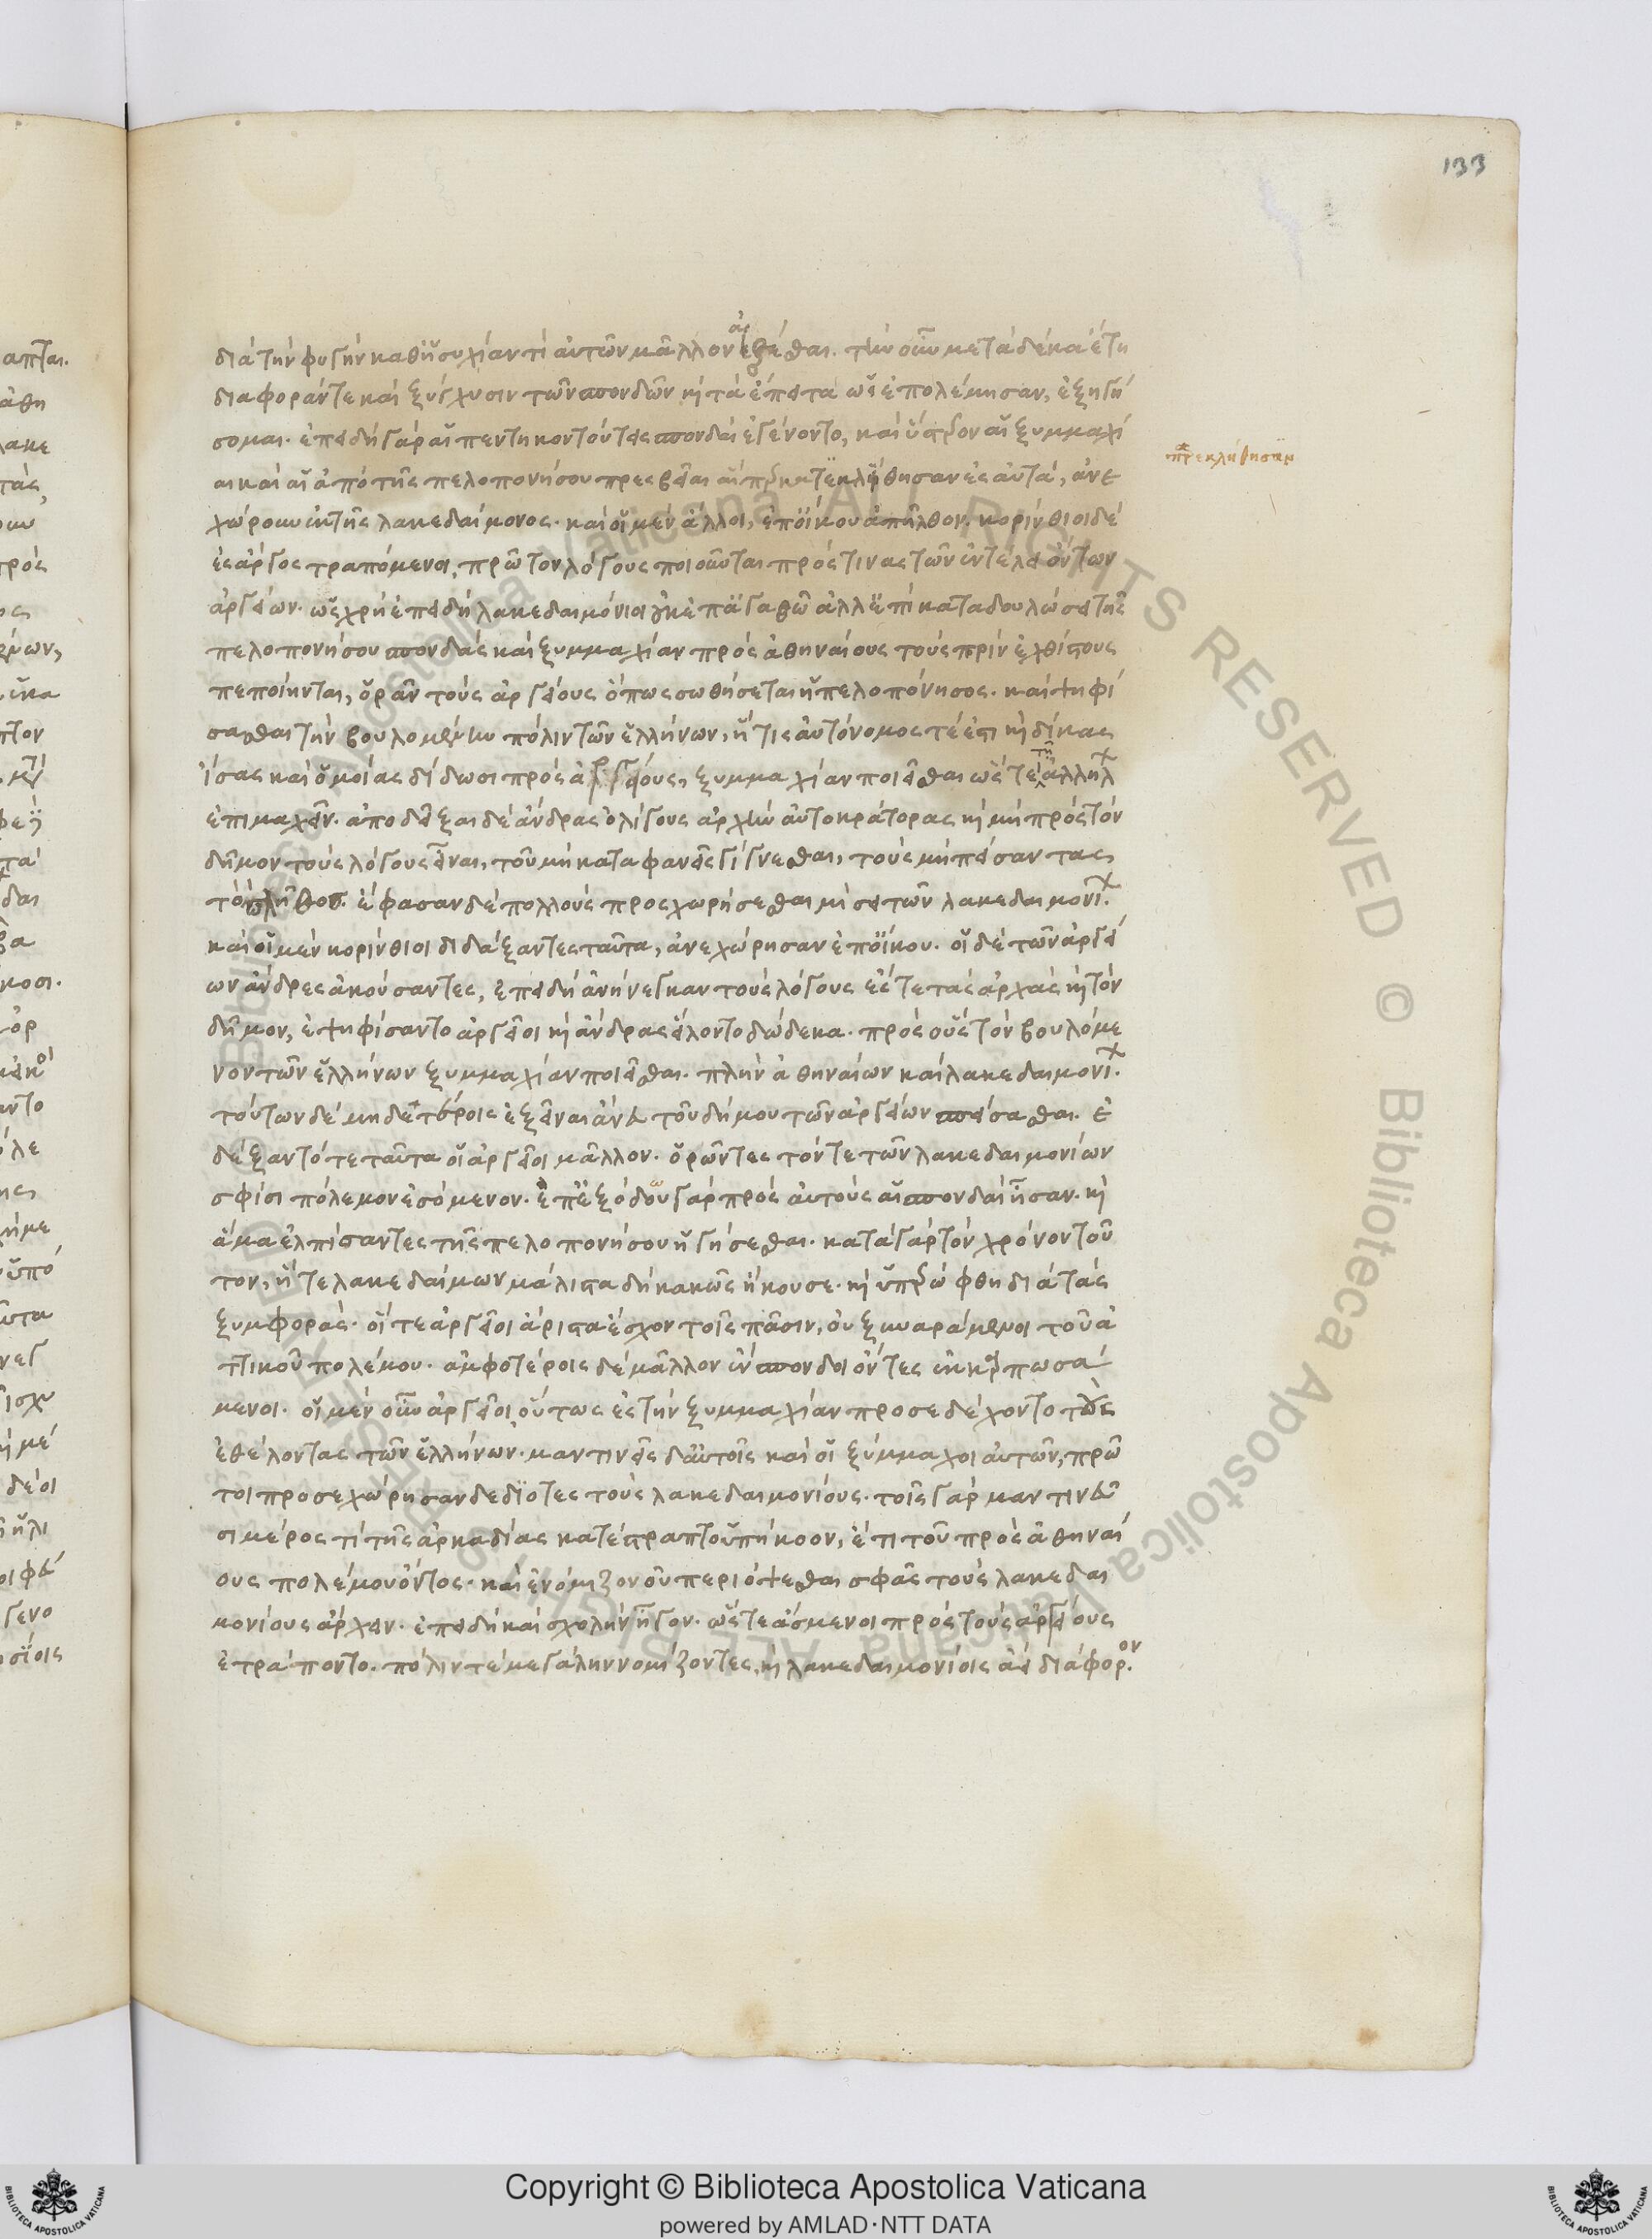 133
διὰ τὴν φυγὴν καθ ἡσυχίαν τί αὐτῶν μᾶλλον αἰσθέσθαι. τὴν οὖν μετὰ δέκα ἔτη
διαφοράν τε καὶ ξύγχυσιν τῶν σπονδῶν κ τὰ ἔπειτα ὡς ἐπολέμησαν, ἐξηγή
σομαι. ἐπειδὴ γὰρ αἱ πεντηκοντούτεις σπονδαὶ ἐγένοντο, καὶ ὕστερον αἱ ξυμμαχί
αι καὶ αἱ ἀπὸ τῆς πελοπονήσου πρεσβεῖαι αἵπερ κατεκλήθησαν ἐς αὐτά, ἀνε
παρεκλήθησαν
χώρουν ἐκ τῆς λακεδαίμονος. καὶ οἱ μὲν ἄλλοι, ἐπ οἴκου ἀπῆλθον. κορίνθιοι δὲ
ἐς ἄργος τραπόμενοι, πρῶτον λόγους ποιοῦνται πρός τινας τῶν ἐν τέλει ὄντων
ἀργείων. ὡς χρὴ ἐπειδὴ λακεδαιμόνιοι οὐκ ἐπ ἀγαθῶ ἀλλ ἐπὶ καταδουλώσει τῆς
πελοπονήσου σπονδὰς καὶ ξυμμαχίαν πρὸς ἀθηναίους τοὺς πρὶν ἐχθίστους
πεποίηνται, ὁρᾶν τοὺς ἀργείους ὅπως σωθήσεται ἡ πελοπόνησος. καὶ ψηφί
σασθαι τὴν βουλομένην πόλιν τῶν ἑλλήνων, ἥτις αὐτόνομός τέ ἐστι κ δίκας
ἴσας καὶ ὁμοίας δίδωσι πρὸς ἀργείους, ξυμμαχίαν ποιεῖσθαι ὥστε τῆ ἀλλήλ
ἐπιμαχεῖν. ἀποδεῖξαι δὲ ἄνδρας ὀλίγους ἀρχὴν αὐτοκράτορας κ μὴ πρὸς τὸν
δῆμον τοὺς λόγους εἶναι, τοῦ μὴ καταφανεῖς γίγνεσθαι, τοὺς μὴ πείσαντας
τὸ πλῆθος. ἔφασαν δὲ πολλοὺς προσχωρήσεσθαι μίσει τῶν λακεδαιμονί.
καὶ οἱ μὲν κορίνθιοι διδάξαντες ταῦτα, ἀνεχώρησαν ἐπ οἴκου. οἱ δὲ τῶν ἀργεί
ων ἄνδρες ἀκούσαντες, ἐπειδὴ ἀνήνεγκαν τοὺς λόγους ἔς τε τὰς ἀρχὰς κ τὸν
δῆμον, ἐψηφίσαντο ἀργεῖοι κ ἄνδρας εἵλοντο δώδεκα. πρὸς οὓς τὸν βουλόμε
νον τῶν ἑλλήνων ξυμμαχίαν ποιεῖσθαι. πλὴν ἀθηναίων καὶ λακεδαιμονί.
τούτων δὲ μηδετέροις ἐξεῖναι ἄνευ τοῦ δήμου τῶν ἀργείων σπείσασθαι. ἐ
δέξαντό τε ταῦτα οἱ ἀργεῖοι μᾶλλον. ὁρῶντες τόν τε τῶν λακεδαιμονίων
σφίσι πόλεμον ἐσόμενον. ἐπ ἐξόδου γὰρ πρὸς αὐτοὺς αἱ σπονδαὶ ἦσαν. κ
ἅμα ἐλπίσαντες τῆς πελοπονήσου ἡγήσεσθαι. κατὰ γὰρ τὸν χρόνον τοῦ
τον, ἥ τε λακεδαίμων μάλιστα δὴ κακῶς ἤκουσε. κ ὑπερώφθη διὰ τὰς
ξυμφοράς. οἵ τε ἀργεῖοι ἄριστα ἔσχον τοῖς πᾶσιν, οὐ ξυναράμενοι τοῦ ἀ
ττικοῦ πολέμου. ἀμφοτέροις δὲ μᾶλλον ἔνσπονδοι ὄντες ἐκκαρπωσά
μενοι. οἱ μὲν οὖν ἀργεῖοι, οὕτως ἐς τὴν ξυμμαχίαν προσεδέχοντο τοὺς
ἐθέλοντας τῶν ἑλλήνων. μαντινεῖς δ αὐτοῖς καὶ οἱ ξύμμαχοι αὐτῶν, πρῶ
τοι προσεχώρησαν δεδιότες τοὺς λακεδαιμονίους. τοῖς γὰρ μαντινεῦ
σι μέρος τι τῆς ἀρκαδίας κατέστραπτο ὑπήκοον, ἔτι τοῦ πρὸς ἀθηναί
ους πολέμου ὄντος. καὶ ἐνόμιζον οὐ περιόψεσθαι σφᾶς τοὺς λακεδαι
μονίους ἄρχειν. ἐπειδὴ καὶ σχολὴν ἦγον. ὥστε ἄσμενοι πρὸς τοὺς ἀργείους
ἐτράποντο. πόλιν τε μεγάλην νομίζοντες, κ λακεδαιμονίοις ἀεὶ διάφορον.
Copyright © Biblioteca Apostolica Vaticana
powered by AMLAD·NTT DATA